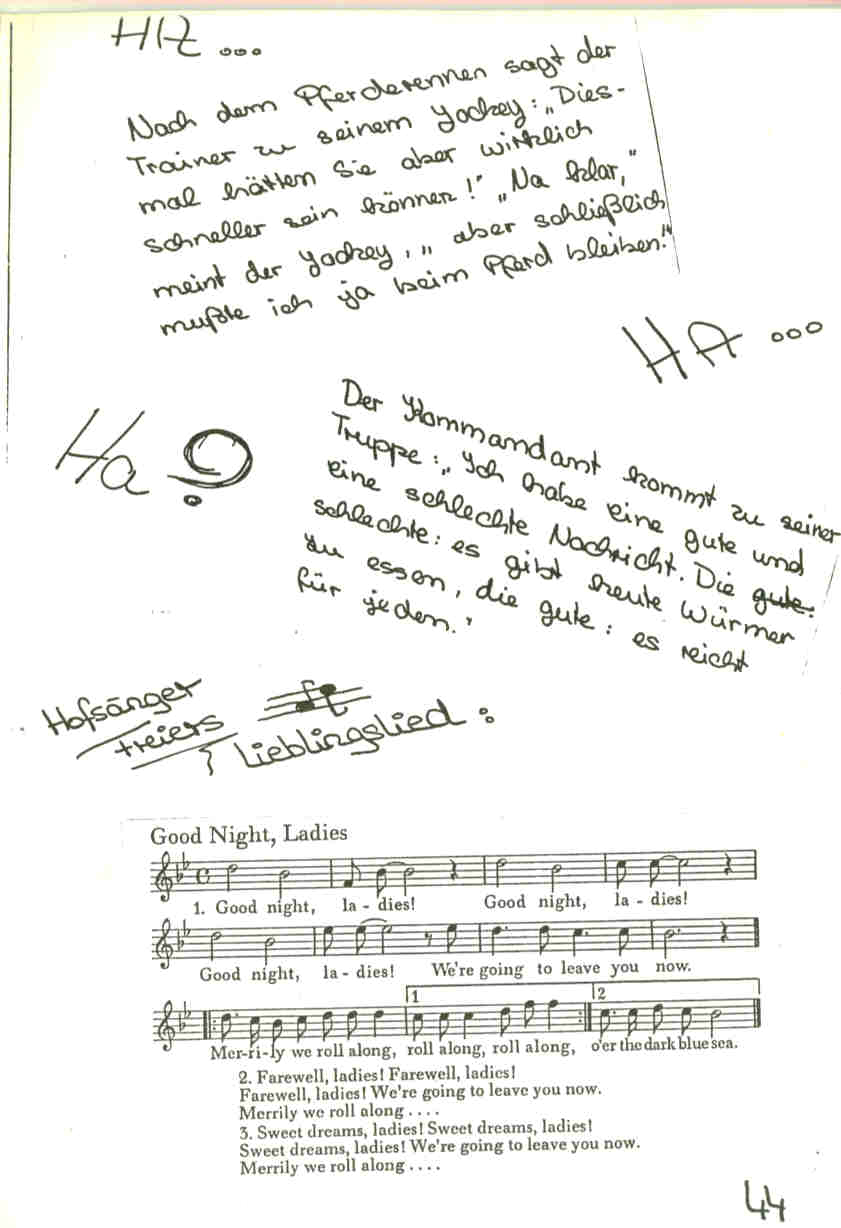 HA ...
Nach dem Pferderennen sagt der
Trainer zu seinem Jockey: „Dies-
mal hätten Sie aber wirklich
schneller sein können!" „Na klar,"
meint der Jockey, „aber schließlich
mußte ich ja beim Pferd bleiben."
HA ...
Ha
Der Kommandant kommt zu seiner
Truppe: „Ich habe eine gute und
eine schlechte Nachricht. Die gute:
schlechte: es gibt heute Würmer
zu essen, die gute: es reicht
für jeden."
Hofsänger
freiers
Lieblingslied:
Good Night, Ladies
1. Good night, la - dies! Good night, la - dies!
Good night, la - dies! We're going to leave you now.
1 2
Mer-ri-ly we roll along, roll along, roll along, o'er the dark blue sea.
2. Farewell, ladies! Farewell, ladies!
Farewell, ladies! We're going to leave you now.
Merrily we roll along . . . .
3. Sweet dreams, ladies! Sweet dreams, ladies!
Sweet dreams, ladies! We're going to leave you now.
Merrily we roll along . . . .
44